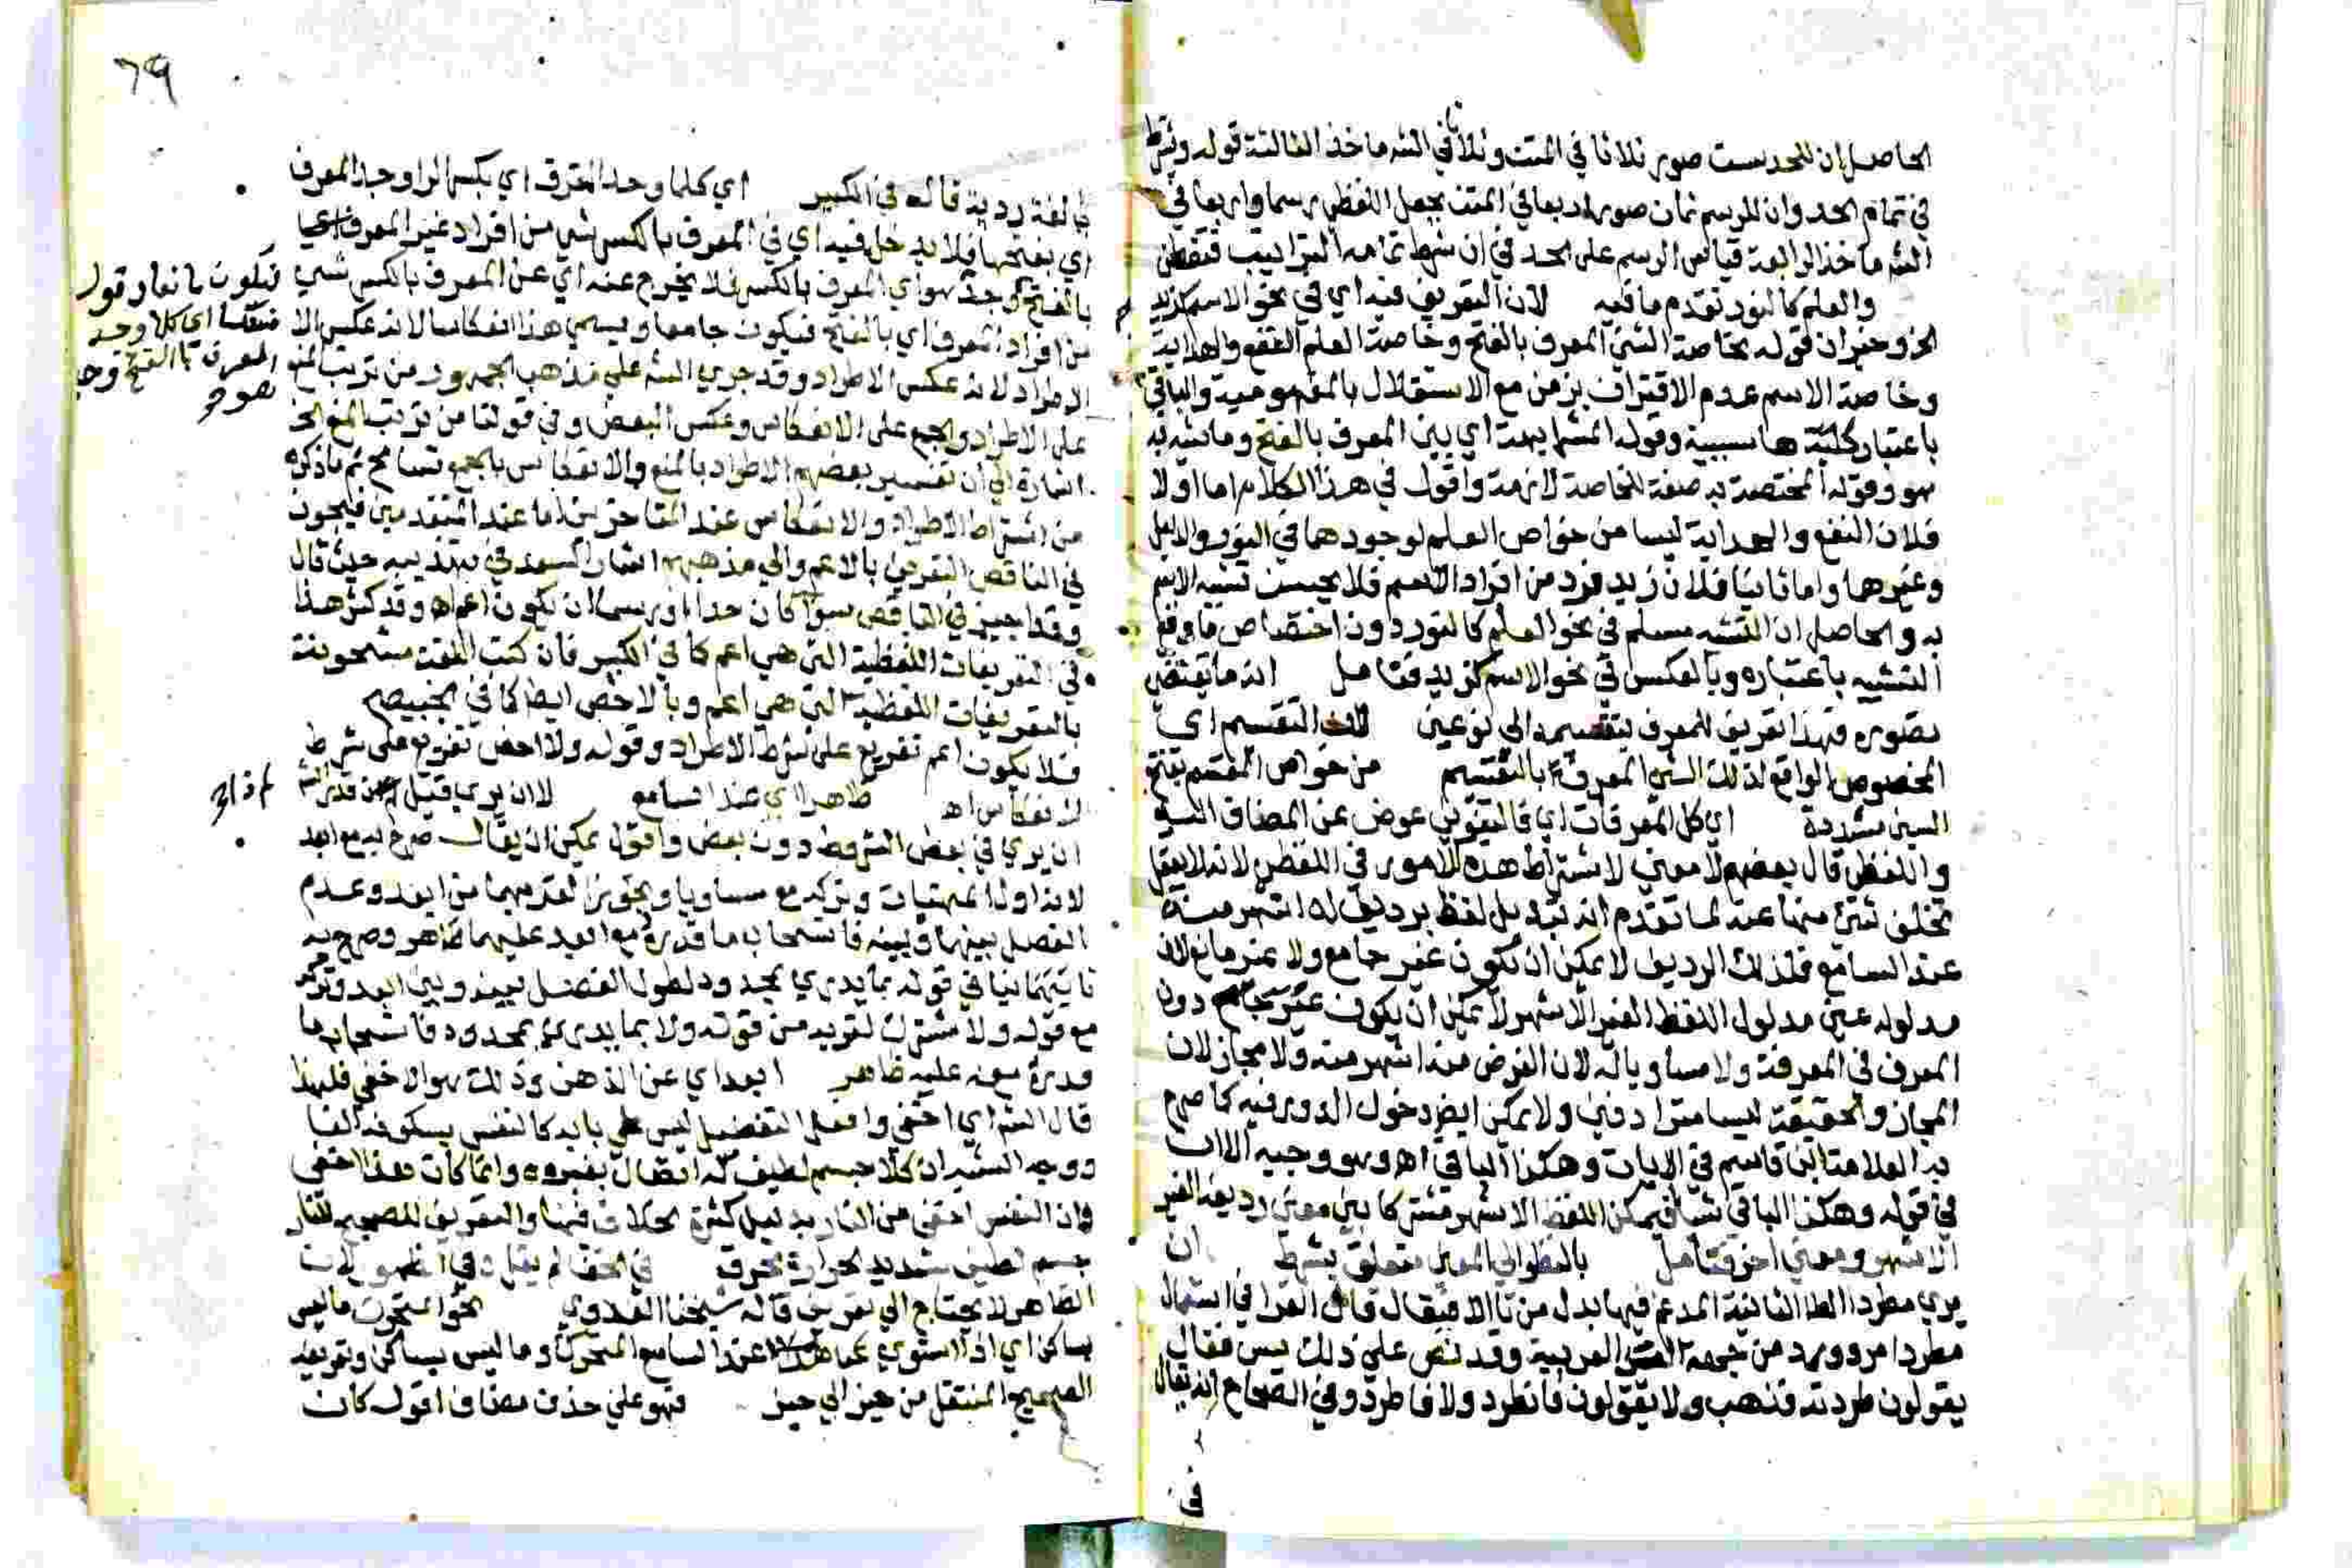 الحاصل ان للحد ست صور ثلاثا في المتن وثلاثا في الشـ ماخذ الثالثة قوله وشرط
في تمام الحد وان للرسم ثمان صور اربعا في المتن بجعل اللفظي رسما واربعا في
الشـ ماخذ الرابعة قياس الرسم على الحد في ان شرط تمامه الترتيب فتفطن
والعلم كالنور تقدم ما فيه لان التعريف فيه اي في نحو الاسم كزيد
الخ وحفران قوله بخاصة الشئ المعرف بالفتح وخاصة العلم النفع والهداية
وخاصة الاسم عدم الاقتران بزمن مع الاستقلال بالمفهومية والباقي
باعتبار كليته ها سببية وقوله المشابهة اي بين المعرف بالفتح وما شبه به
هو وقوله المختصة به صفة للخاصة لازمة واقول في هذا الكلام اما اولا
فلان النفع والهداية ليسا من خواص العلم لوجودهما في النور والابل
وغيرها واما ثانيا فلان زيد فرد من افراد الاسم فلا يحسن تشبيه الاسم
به والحاصل ان التشبيه مسلم في نحو العلم كالنور دون اختصاص ما وقع
التشبيه باعتباره وبالعكس في نحو الاسم كزيد فتامل انه ما يقتضي
تصوره فهذا تعريف للمعرف بتقسيمه الى نوعين لان التقسيم اي
المخصوص الواقع لذلك الشئ المعرف بالتقسيم من خواص المقسم بفتح
السين مشددة اي كل المعرفات اي فالتنوين عوض عن المضاف اليه
واللفظي قال بعضهم لا معنى لاشتراط هذه الامور في اللفظي لانه لا يعقل
تخلف شئ منها عنه لما تقدم انه تبديل لفظ برديف له اشهر منه
عند السامع فلذلك الرديف لا يمكن ان يكون غير جامع ولا غير مانع لان
مدلوله عين مدلول اللفظ الغير الاشهر لا يمكن ان يكون غير جامع دون
المعرف في المعرفة ولا مساويا له لان الفرض منه اشهر منه ولا مجاز لان
المجاز والحقيقة ليسا مترادفين ولا يمكن ايضا دخول الدور فيه كما صرح
به العلامة ابن قاسم في الايات وهكذا الباقي اه وهو وجيه الا ان
في قوله وهكذا الباقي شيا فيمكن اللفظ الاشهر مشتركا بين معنى رديفه الغير
الاشهر ومعنى اخر فتامل بالنظر الى المعنى متعلق بشرط ان
يرى مطردا الطا الثانية المدغم فيها بدل من تا الافتعال قال الفرا في استعمال
مطردا مردود من جهة العربية وقد نص على ذلك يس فقال
يقولون طردته فذهب ولا يقولون فانطرد ولا فاطرد وفي الصحاح انه يقال
في
٦٩
بالغة ردية قاله في الكبير اي كلما وجد المعرف اي بكسر الرا وجد المعرف
اي بفتحها فلا يدخل فيه اي في المعرف بالكسر شئ من افراد غير المعرف اعيا
بالفتح وجد هو اي المعرف بالكسر فلا يخرج عنه اي عن المعرف بالكسر شئ
من افراد المعرف اي بالفتح فيكون جامعا ويسمى هذا انعكاسا لانه عكس الا
الاطراد لانه عكس الاطراد وقد جرى الشـ على مذهب الجمهور من ترتب المنع
على الاطراد والجمع على الانعكاس وعكس البعض وفي قولنا من ترتب المنع الخ
اشارة الى ان تفسير بعضهم الاطراد بالمنع والانعكاس بالجمع تسامح ثم ما ذكره
من اشتراط الاطراد والانعكاس عند المتاخرين اما عند المتقدمين فيجوز
في الناقص التعريف بالاعم والى مذهبهم اشار السعد في تهذيبه حيث قال
وقد اجيز في الناقص سواء كان حدا او رسما ان يكون اعم اه وقد كثر هذا
في التعريفات اللفظية التي هي اعم كما في الكبير فان كتب اللغة مشحونة
بالتعريفات اللفظية التي هي اعم وبالاخص ايضا كما في الخبيصي
فلا يكون اعم تفريع على شرط الاطراد وقوله ولا اخص تفريع على شرط
الانعكاس اه ظاهرا اي عند السامع لا ان يرى قبيل من قدر الشـ
ان يرى في بعض الشروط دون بعض واقول يمكن ان يقال صرح به مع ابعد
لانه اول المنهيات وتركه مع مساويا وتجوزا لقربهما من ابعد وعدم
الفصل بينهما وبينه فانسحاب ما قدره مع ابعد عليهما ظاهر وصرح به
ثانيا في قوله بما يدرى بمحدود لطول الفصل بينه وبين ابعد وتركه
مع قوله ولا مشترك لقربه من قوله ولا بما يدرى بمحدود فانسحاب ما
قدره معه عليه ظاهر ابعدا اي عن الذهن وذلك هو الاخفى فلهذا
قال الشـ اي اخفى وافعل التفضيل ليس على بابه كالنفس بسكون الفا
ووجه الشبه ان كلا جسم لطيف له اتصال بغيره وانما كان هذا اخفى
فان النفس اخفى من النار بدليل كثرة الخلاف فيها والتعريف الصحيح للنار
جسم لطيف شديد الحرارة محرق في الخفا لم يقل وفي الظهور لان
الظاهر لا يحتاج الى تعريف قاله شيخنا العدوي نحو المتحرك ما ليس
بساكن اي اذا استوى عند السامع المتحرك وما ليس بساكن وتعريفه
الصحيح المنتقل من حيز الى حيز فهو على حذف مضاف اقول كان
فيكون مانعا وقوله
منعكسا اي كلما وجد
المعرف بالفتح وجد
هو صح